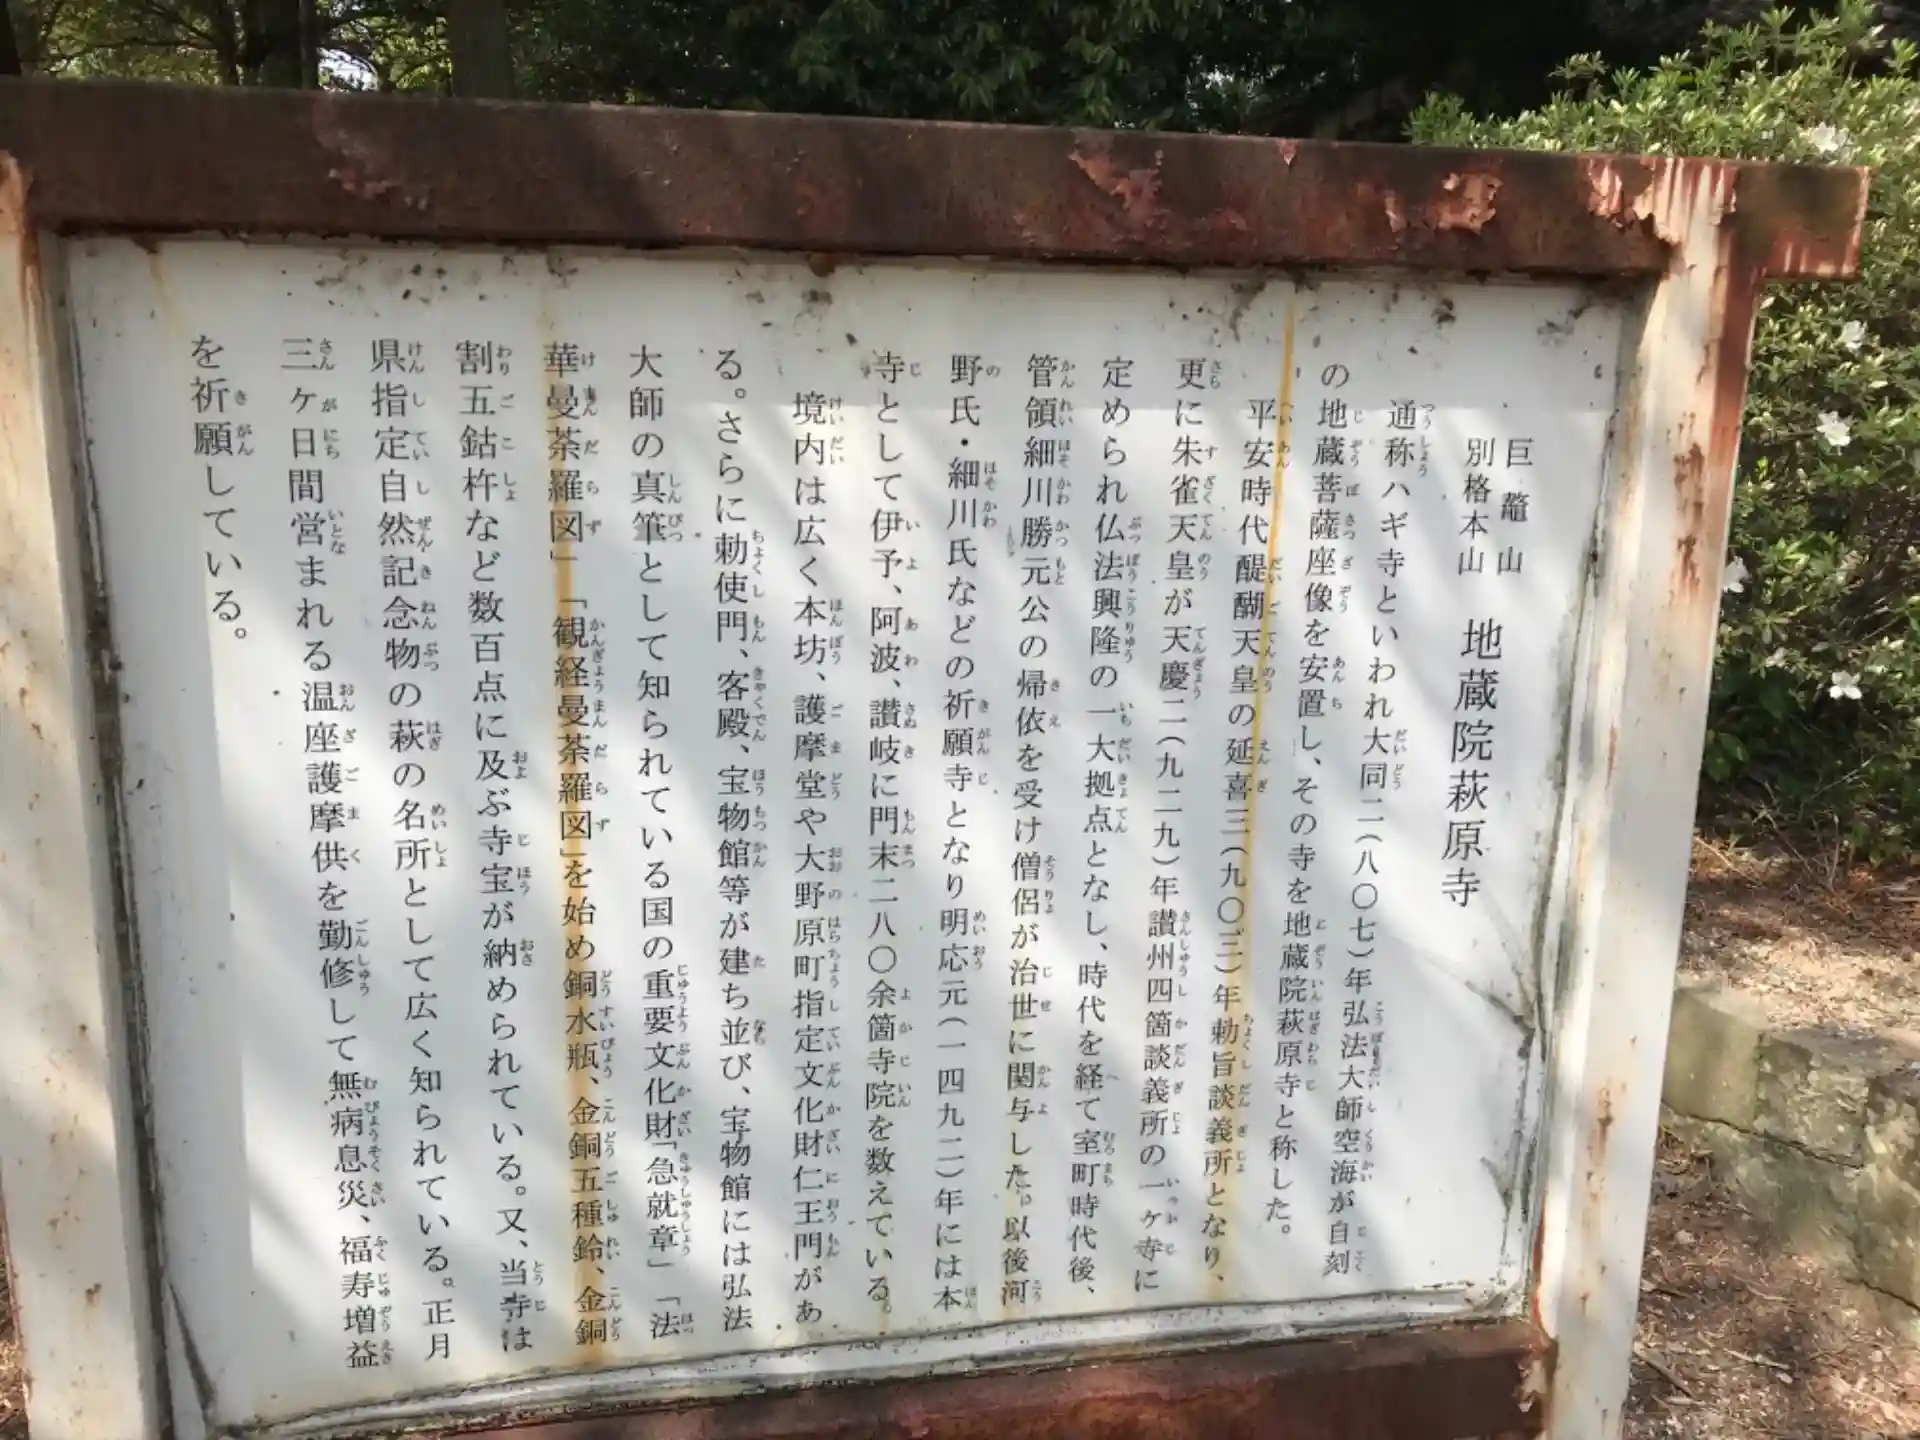 巨鼇山
別格本山
地蔵院萩原寺
通称ハギ寺といわれ大同二(八〇七)年弘法大師空海が自刻
の地蔵菩薩座像を安置し、その寺を地蔵院萩原寺と称した。
平安時代醍醐天皇の延喜三(九〇三)年勅旨談義所となり、
更に朱雀天皇が天慶二(九二九)年讃州四箇談義所の一ヶ寺に
定められ仏法興隆の一大拠点となし、時代を経て室町時代後、
管領細川勝元公の帰依を受け僧侶が治世に関与した。以後河
野氏・細川氏などの祈願寺となり明応元(一四九二)年には本
寺として伊予、阿波、讃岐に門末二八〇余箇寺院を数えている。
境内は広く本坊、護摩堂や大野原町指定文化財仁王門があ
る。さらに勅使門、客殿、宝物館等が建ち並び、宝物館には弘法
大師の真筆として知られている国の重要文化財「急就章」「法
華曼荼羅図」「観経曼荼羅図」を始め銅水瓶、金銅五種鈴、金銅
割五鈷杵など数百点に及ぶ寺宝が納められている。又、当寺は
県指定自然記念物の萩の名所として広く知られている。正月
三ケ日間営まれる温座護摩供を勤修して無病息災、福寿増益
を祈願している。